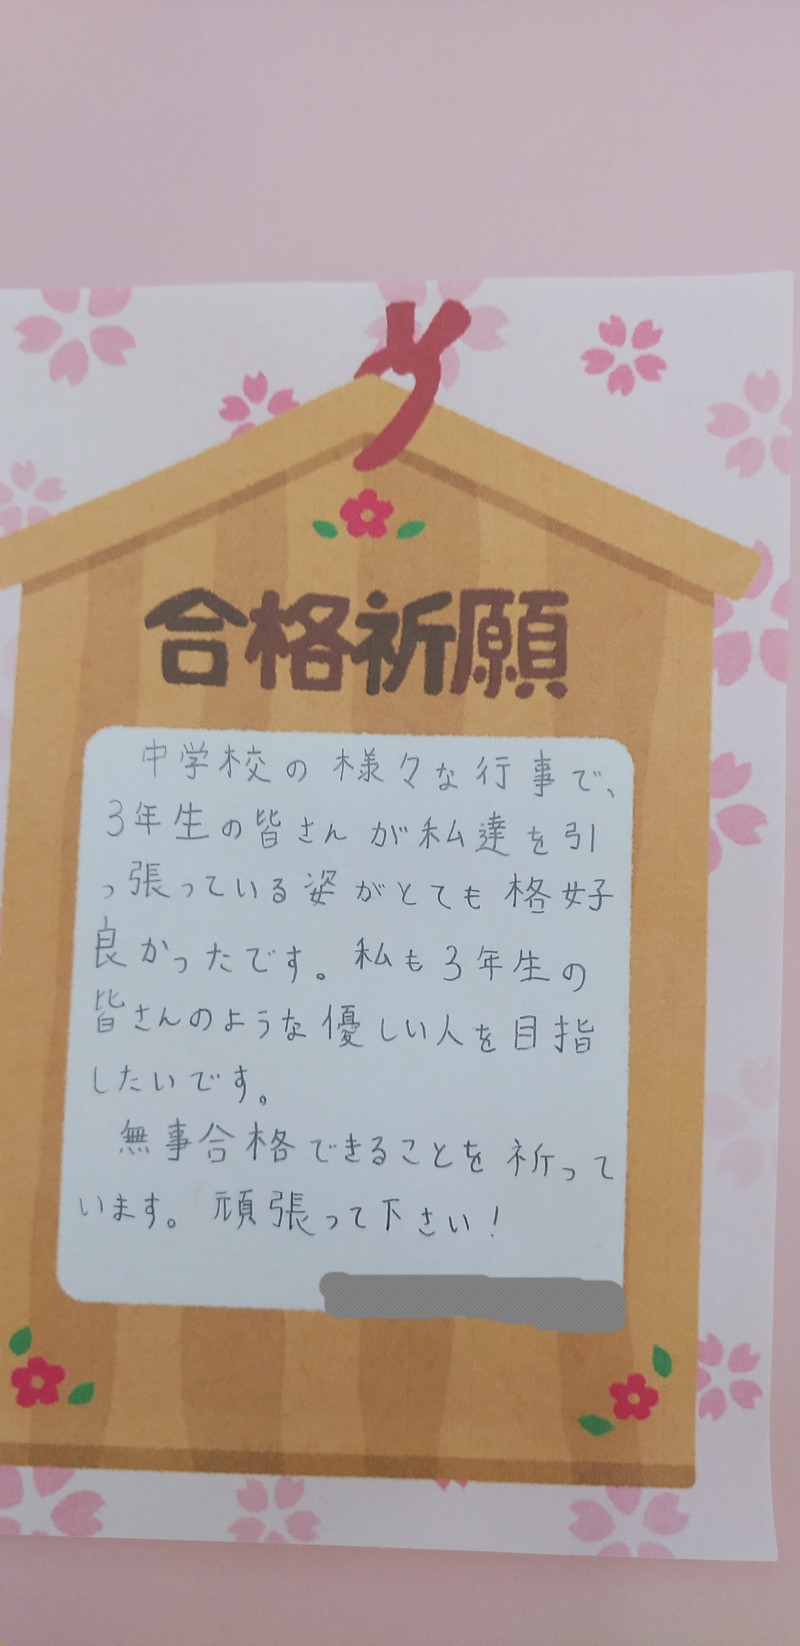 合格祈願
中学校の様々な行事で、
3年生の皆さんが私達を引
っ張っている姿がとても格好
良かったです。私も3年生の
皆さんのような優しい人を目指
したいです。
無事合格できることを祈って
います。頑張って下さい!